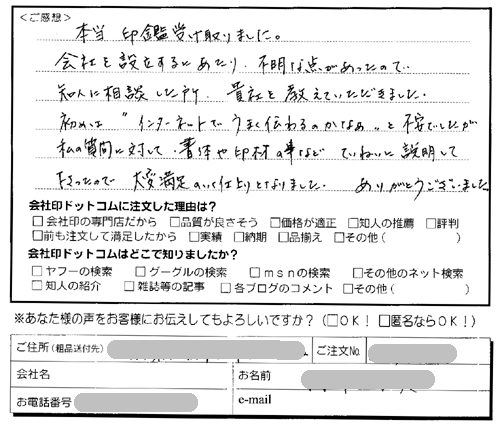 ＜ご感想＞
本当 印鑑受け取りました。
会社を設立するにあたり、不明な点があったので、
知人に相談した所、貴社を教えていただきました。
初めは "インターネットで うまく伝わるのかなぁ" と不安でしたが
私の質問に対して、書体や印材の事など ていねいに説明して
下さったので 大変満足のいく仕上りとなりました。 ありがとうございました
会社印ドットコムに注文した理由は？
□会社印の専門店だから □品質が良さそう □価格が適正 □知人の推薦 □評判
□前も注文して満足したから □実績 □納期 □品揃え □その他（ ）
会社印ドットコムはどこで知りましたか？
□ヤフーの検索 □グーグルの検索 □ｍｓｎの検索 □その他のネット検索
□知人の紹介 □雑誌等の記事 □各ブログのコメント □その他（ ）
※あなた様の声をお客様にお伝えしてもよろしいですか？（□ＯＫ！ □匿名ならＯＫ！）
ご住所（粗品送付先） ご注文No.
会社名 お名前
お電話番号 e-mail